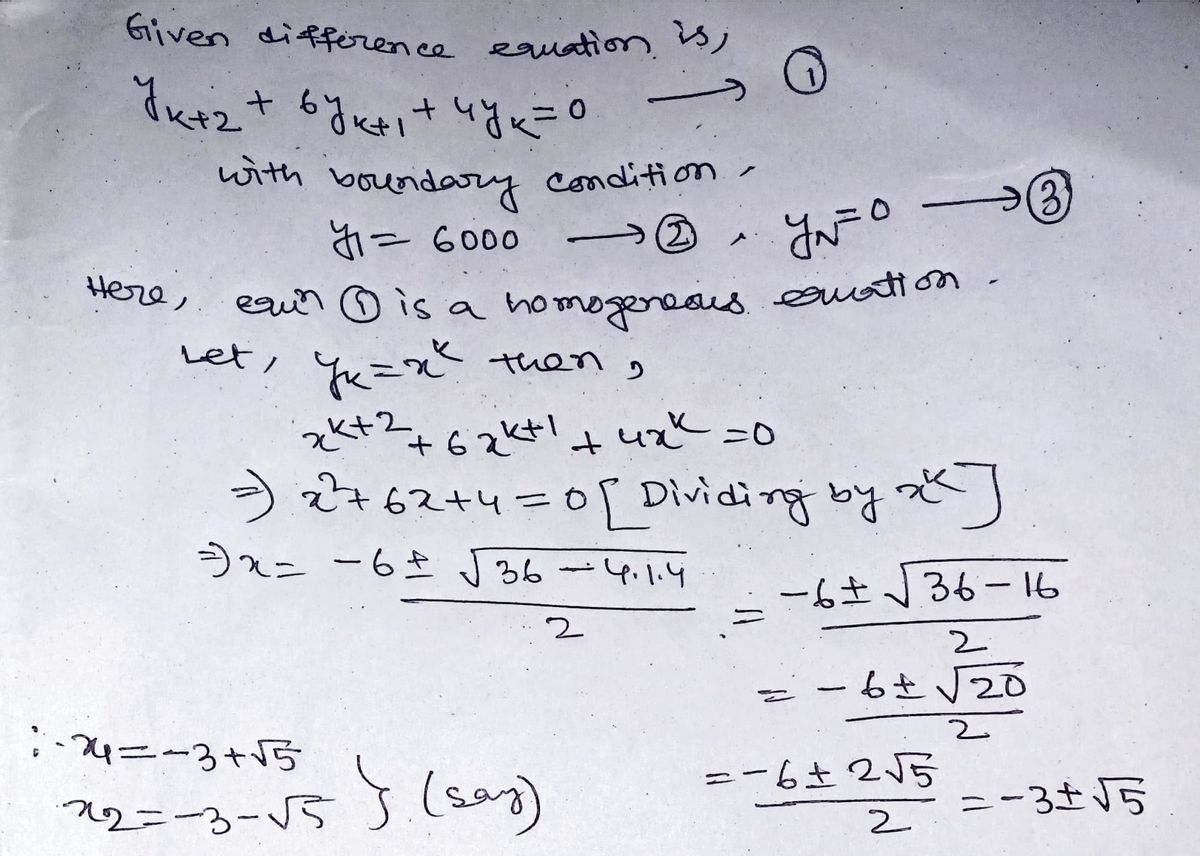 Given difference equation is,
y_{k+2} + 6y_{k+1} + 4y_k = 0 → ①
with boundary condition,
y_1 = 6000 → ②, y_N = 0 → ③
Here, equn ① is a homogeneous equation.
Let, y_k = x^k then,
x^{k+2} + 6x^{k+1} + 4x^k = 0
⇒ x^2 + 6x + 4 = 0 [Dividing by x^k]
⇒ x = (-6 ± √(36 - 4.1.4))/2 = (-6 ± √(36 - 16))/2
= (-6 ± √20)/2
= (-6 ± 2√5)/2 = -3 ± √5
∴ x_1 = -3 + √5
x_2 = -3 - √5 } (say)